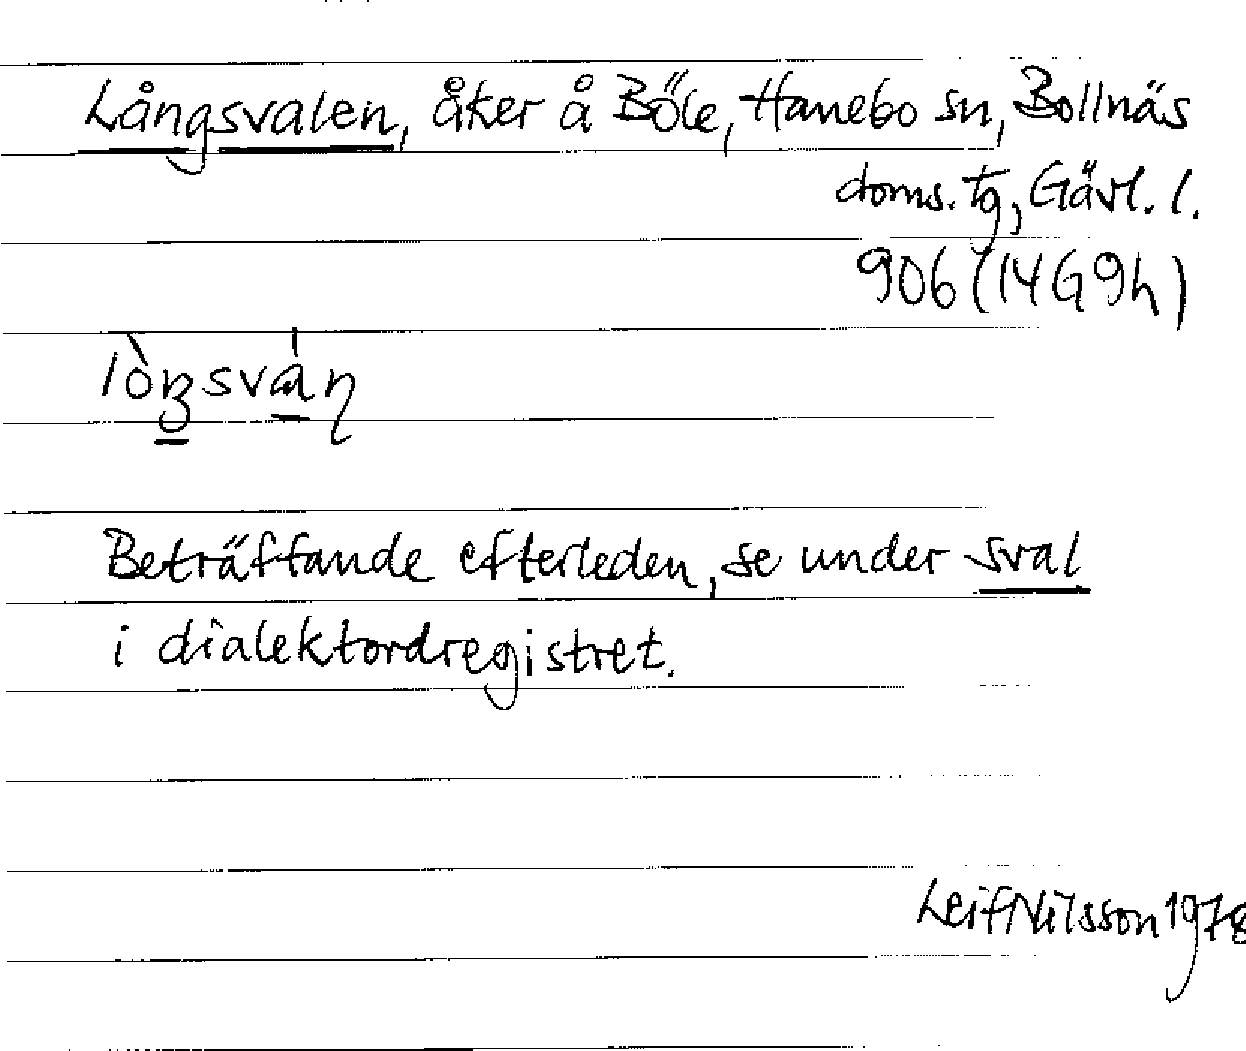 Långsvalen, åker å Böle, Hanebo sn, Bollnäs
doms. tg, Gävl. l.
906 (14G9h)
Beträffande efterleden, se under sval
i dialektordregistret.
Leif Nilsson 1978